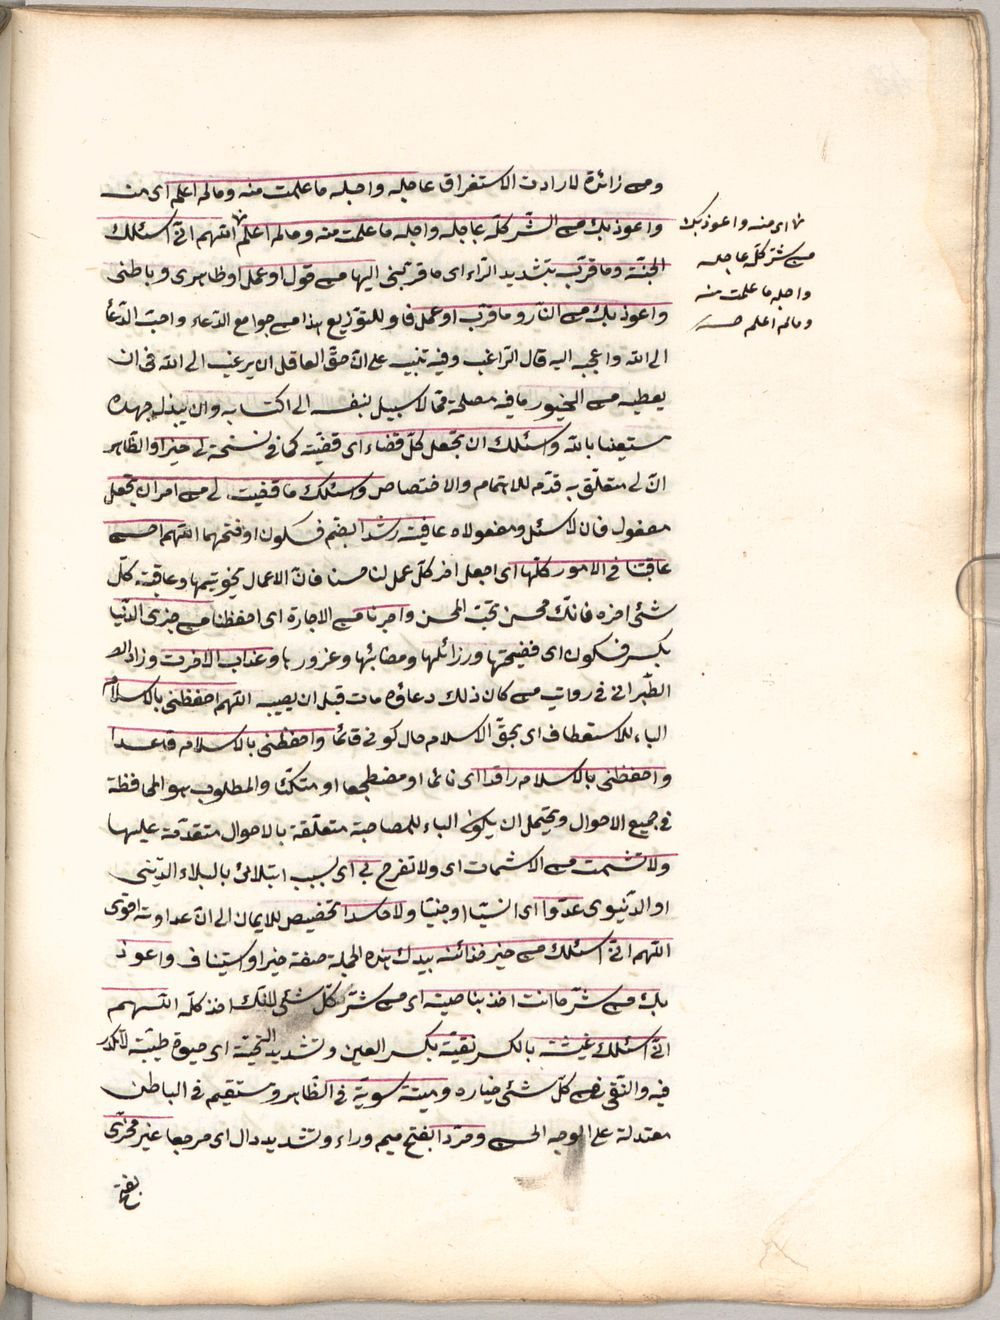 ومن زائدة لارادت الاستغراق عاجله واجله ما علمت منه وما لم اعلم اى منه
واعوذ بك من الشّر كلّه عاجله واجله ما علمت منه وما لم اعلم اللّهم انّى اسئلك
الجنّة وما قرّب بتشديد الرّاء اى ما قرّبنى اليها من قول او عمل او ظاهرى وباطنى
واعوذ بك من النّار وما قرّب او عمل فاو للتوزيع هذا من جوامع الدّعاء واحبّ الدّعأ
الى اللّه واعجبه اليه قال الرّاغب وفيه تنبيه على انّ حقّ العاقل ان يرغب الى اللّه فى ان
يعطيه من الخيور ما فيه مصلحة ممّا لا سبيل بنفسه الى اكتسابه وان يبذل جهده
مستعينا باللّه واسئلك ان تجعل كلّ قضاء اى قضيته كما فى نسخة لى خيرا والظّاهر
انّ لى متعلّق به قدّم للاهتمام والاختصاص واسئلك ما قضيت لى من امر ان تجعل
مفعول ثان لاسئل ومفعولاه عاقبته رشدا بضم فسكون او فتحهما اللّهم احسن
عاقبتنا فى الامور كلّها اى اجعل اخر كلّ عمل لنا حسنا فانّ الاعمال بخوتيمها وعاقبة كلّ
شئ اخره فانّك محسن تحبّ المحسن واجرنا من الاجارة اى احفظنا من خزى الدّنيا
بكسر فسكون اى فضيحتها ورزائلها ومصائبها وغرورها وعذاب الاخرت وزاد
الطّبرانى فى روايته من كان ذلك دعاؤه مات قبل ان يصيبه اللّهم احفظنى بالاسلام
الباء للاستعطاف اى بحقّ الاسلام حال كونى قائما واحفظنى بالاسلام قاعدا
واحفظنى بالاسلام راقدا اى نائما او مضطجعا او متكئا والمطلوب هو المحافظة
فى جميع الاحوال ويحتمل ان يكون الباء للمصاحبة متعلّقة بالاحوال متقدّمة عليها
ولا تشمت من الاشمات اى ولا تفرح بى اى بسبب ابتلائى بالبلاء الدّينى
او الدّنيوى عدوّا اى انسيّا او جنيّا ولا حاسدا تخصيص للايمان الى انّ عداوته اقوى
اللّهم انّى اسئلك من خير خزائنه بيدك هذه الجملة صفة خير او استيناف واعوذ
بك من شرّ ما انت اخذ بناصيته اى من شرّ كلّ شئ لانّك اخذ كلّه اللّهم
انّى اسئلك عيشة بالكسر نقيّة بكسر العين وتشديد التحيّة اى حيوة طيّبة لا كدر
فيه والنّقى من كلّ شئ خياره وميتة سويّة فى الظّاهر ومستقيم فى الباطن
معتدلة على الوجه الحسن ومردّا بفتح ميم وراء وتشديد دال اى مرجعا غير مخزى
اى منه واعوذ بك
من شرّ كلّه عاجله
واجله ما علمت منه
وما لم اعلم